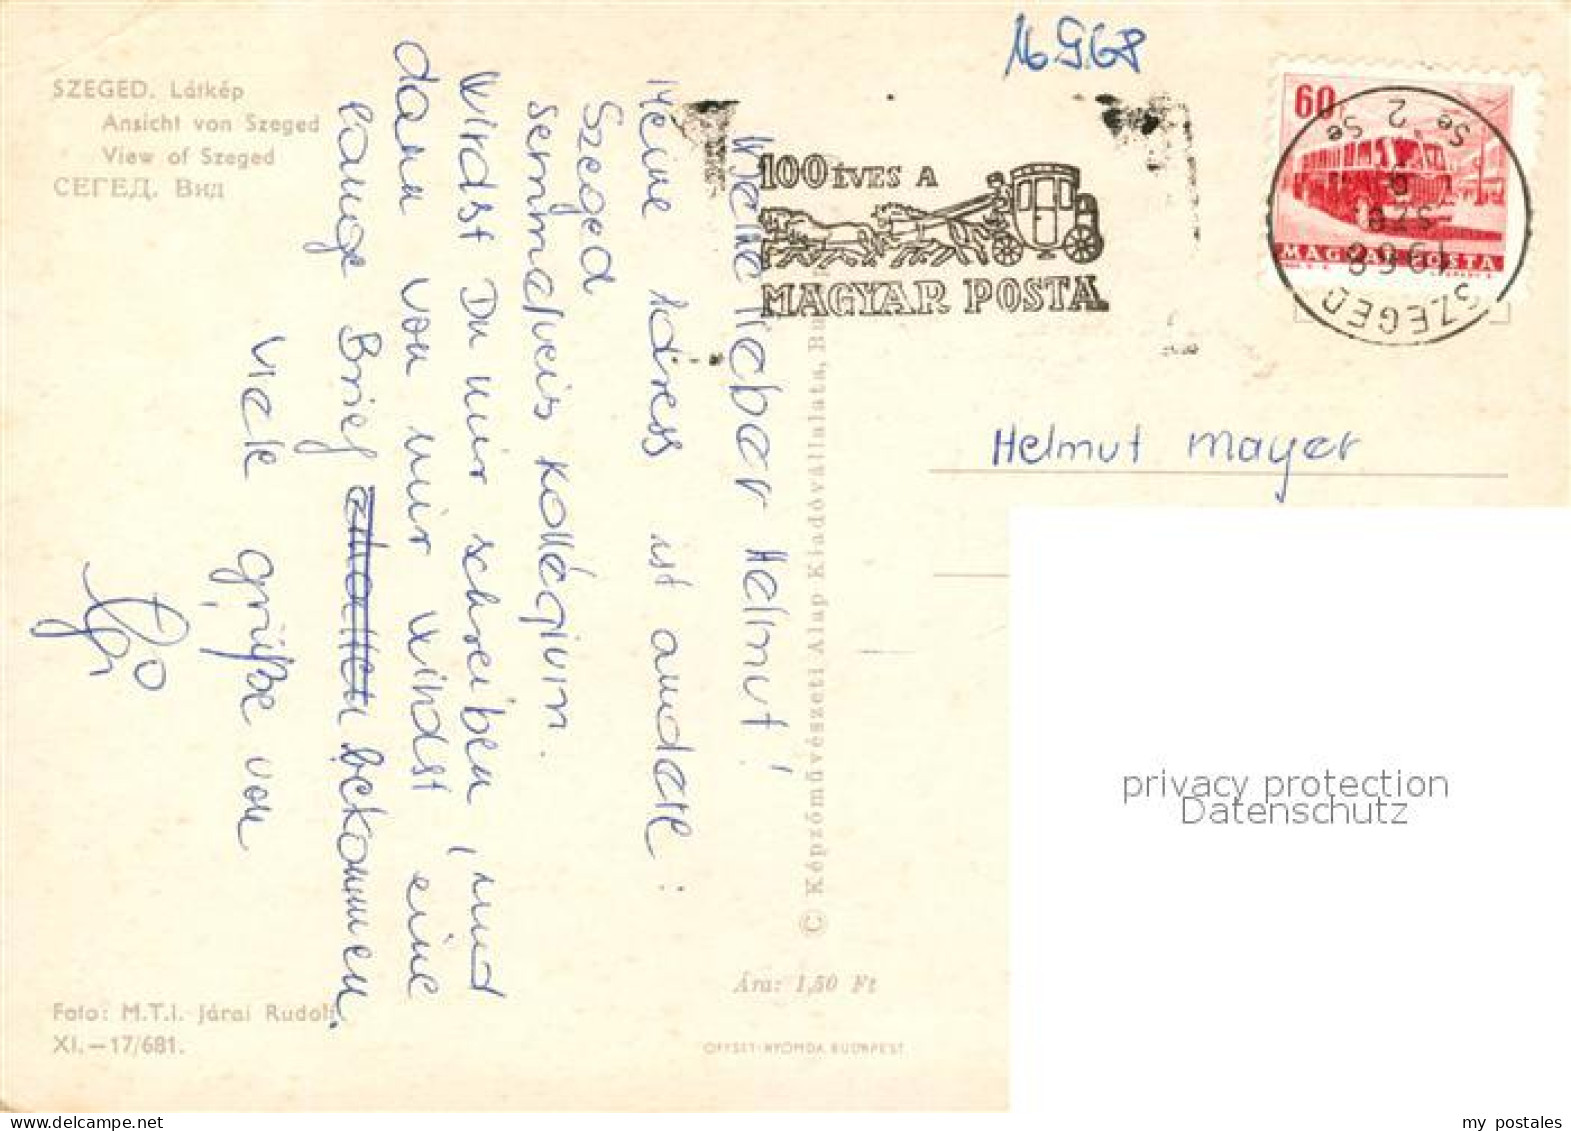 SZEGED. Látkép
Ansicht von Szeged
View of Szeged
СЕГЕД. Вид
16.9.68
100 ÉVES A
MAGYAR POSTA
60
MAGYAR POSTA
SZEGED
1968
SZE
2
Se
Se
Helmut Mayer
Mein lieber Helmut!
Meine Adress ist andere:
Szeged
Semmelweis Kollégium.
Wirdst Du mir schreiben, und
dann von mir wirdst eine
lange Brief bekommen.
Viele grüße von
© Képzőművészeti Alap Kiadóvállalata, Bu
Ára: 1,50 Ft
Foto: M.T.I. Járai Rudolf
XI.—17/681.
OFFSET-NYOMDA BUDAPEST
privacy protection
Datenschutz
my postales